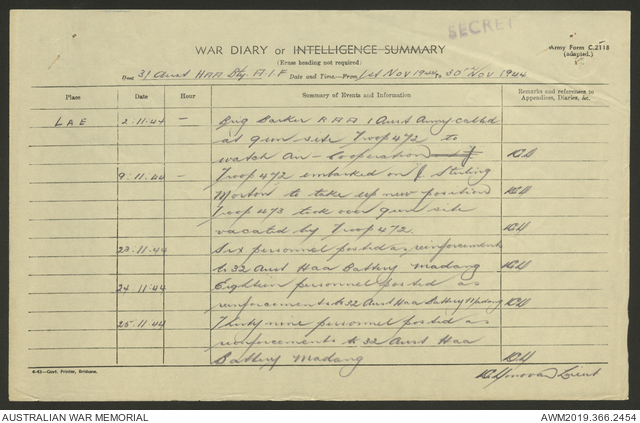 SECRET
WAR DIARY or INTELLIGENCE SUMMARY
Army Form C.2118
(Erase heading not required)
(adapted.)
Unit 31 Aust HAA Bty A.I.F Date and Time—From 1st Nov 1944 to 30th Nov. 1944
Place Date Hour Summary of Events and Information Remarks and references to Appendices, Diaries, &c.
LAE 2.11.44 – Brig Barker R A A 1 Aust Army called
at gun site Troop 472 to
watch Air-Cooperation
9.11.44 – Troop 472 embarked on Stirling
Morton to take up new position
Troop 473 took over gun site
vacated by Troop 472.
23.11.44 Six personnel posted as reinforcements
to 32 Aust Haa Battery Madang
24.11.44 Eighteen personnel posted as
reinforcements to 32 Aust Haa Battery Madang
25.11.44 Thirty nine personnel posted as
reinforcements to 32 Aust Haa
Battery Madang
6-42—Govt. Printer, Brisbane.
Lieut
AUSTRALIAN WAR MEMORIAL AWM2019.366.2454